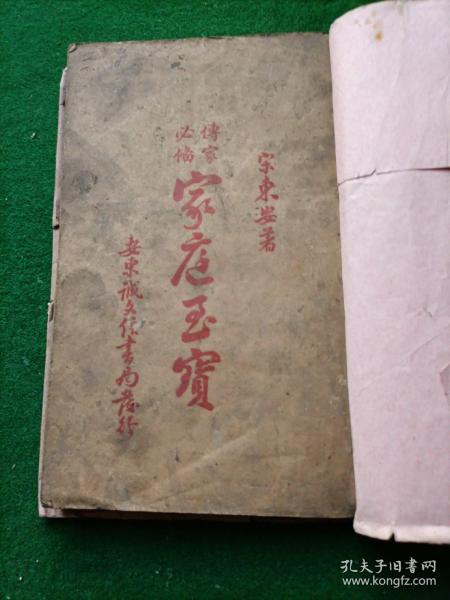 宗東安著
傳家
必備
家庭至寶
安東誠文信書局發行
孔夫子旧书网
www.kongfz.com